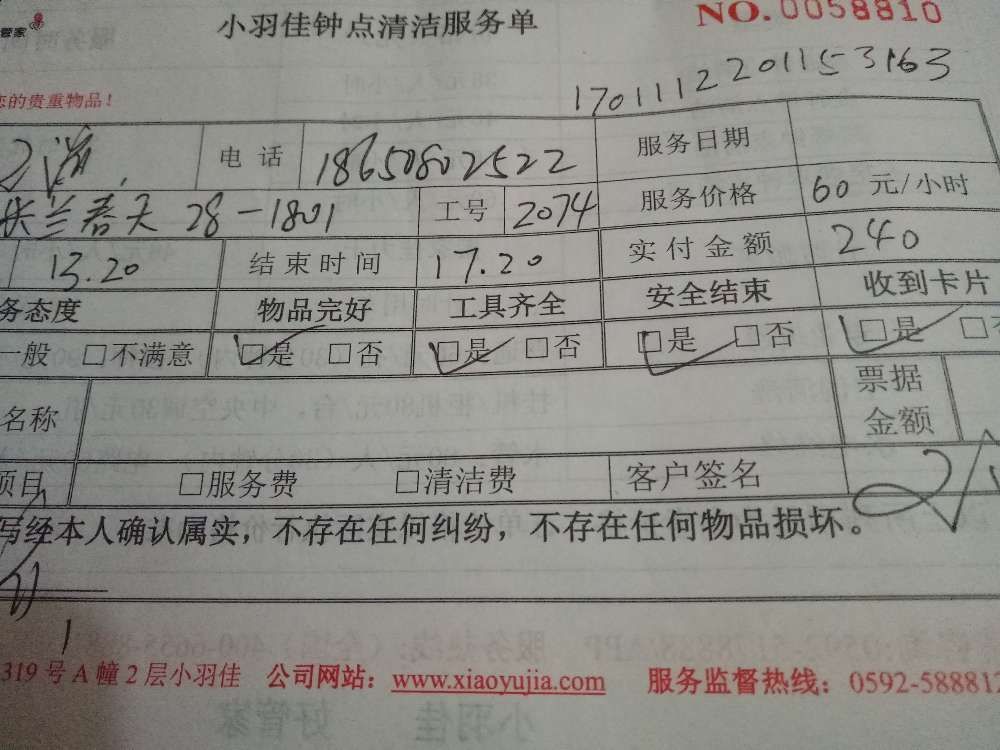 管家
小羽佳钟点清洁服务单
NO.0058810
您的贵重物品!
170111220115 3163
电话 18650802522 服务日期
兰春天 28-1801 工号 2074 服务价格 60 元/小时
13.20 结束时间 17.20 实付金额 240
务态度 物品完好 工具齐全 安全结束 收到卡片
一般 □不满意 □是 □否 □是 □否 □是 □否 □是
名称 票据金额
项目 □服务费 □清洁费 客户签名
写经本人确认属实,不存在任何纠纷,不存在任何物品损坏。
319号A幢2层小羽佳 公司网站:www.xiaoyujia.com 服务监督热线:0592-588812